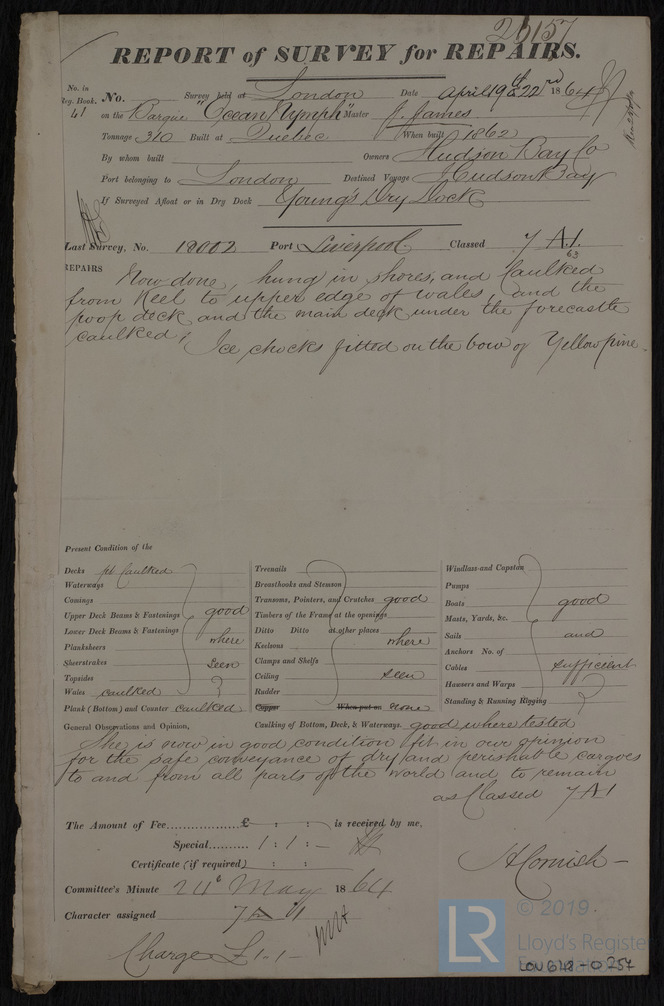 26157
REPORT of SURVEY for REPAIRS.
No. in Reg. Book. 41 No. Survey held at London Date April 19th & 22nd 1864
on the Barque "Ocean Nymph" Master J. James
Tonnage 310 Built at Quebec When built 1862
By whom built Owners Hudson Bay Co
Port belonging to London Destined Voyage Hudson Bay
If Surveyed Afloat or in Dry Dock Young's Dry Dock
Last Survey, No. 18002 Port Liverpool Classed 7 A1.
63
REPAIRS Now done, hung in shores, and caulked
from Keel to upper edge of wales, and the
poop deck and the main deck under the forecastle
caulked, Ice chocks fitted on the bow of Yellow pine.
Present Condition of the
Decks pt caulked
Waterways
Comings
Upper Deck Beams & Fastenings good
Lower Deck Beams & Fastenings where
Planksheers
Sheerstrakes seen
Topsides
Wales caulked
Plank (Bottom) and Counter caulked
Treenails
Breasthooks and Stemson
Transoms, Pointers, and Crutches good
Timbers of the Frame at the openings
Ditto Ditto at other places where
Keelsons
Clamps and Shelfs
Ceiling seen
Rudder
Copper When put on none
Windlass and Capstan
Pumps
Boats good
Masts, Yards, &c.
Sails and
Anchors No. of
Cables sufficient
Hawsers and Warps
Standing & Running Rigging
General Observations and Opinion, Caulking of Bottom, Deck, & Waterways. good where tested
She is now in good condition fit in our opinion
for the safe conveyance of dry and perishable cargoes
to and from all parts of the world and to remain
as Classed 7 A1
The Amount of Fee £ : : is received by me,
Special 1 : 1 : -
Certificate (if required) : :
H Cornish
Committee's Minute 24th May 1864
Character assigned 7 A 1
Charge £1-1-
LR © 2019.
Lloyd's Register
Foundation
LON 648-0257